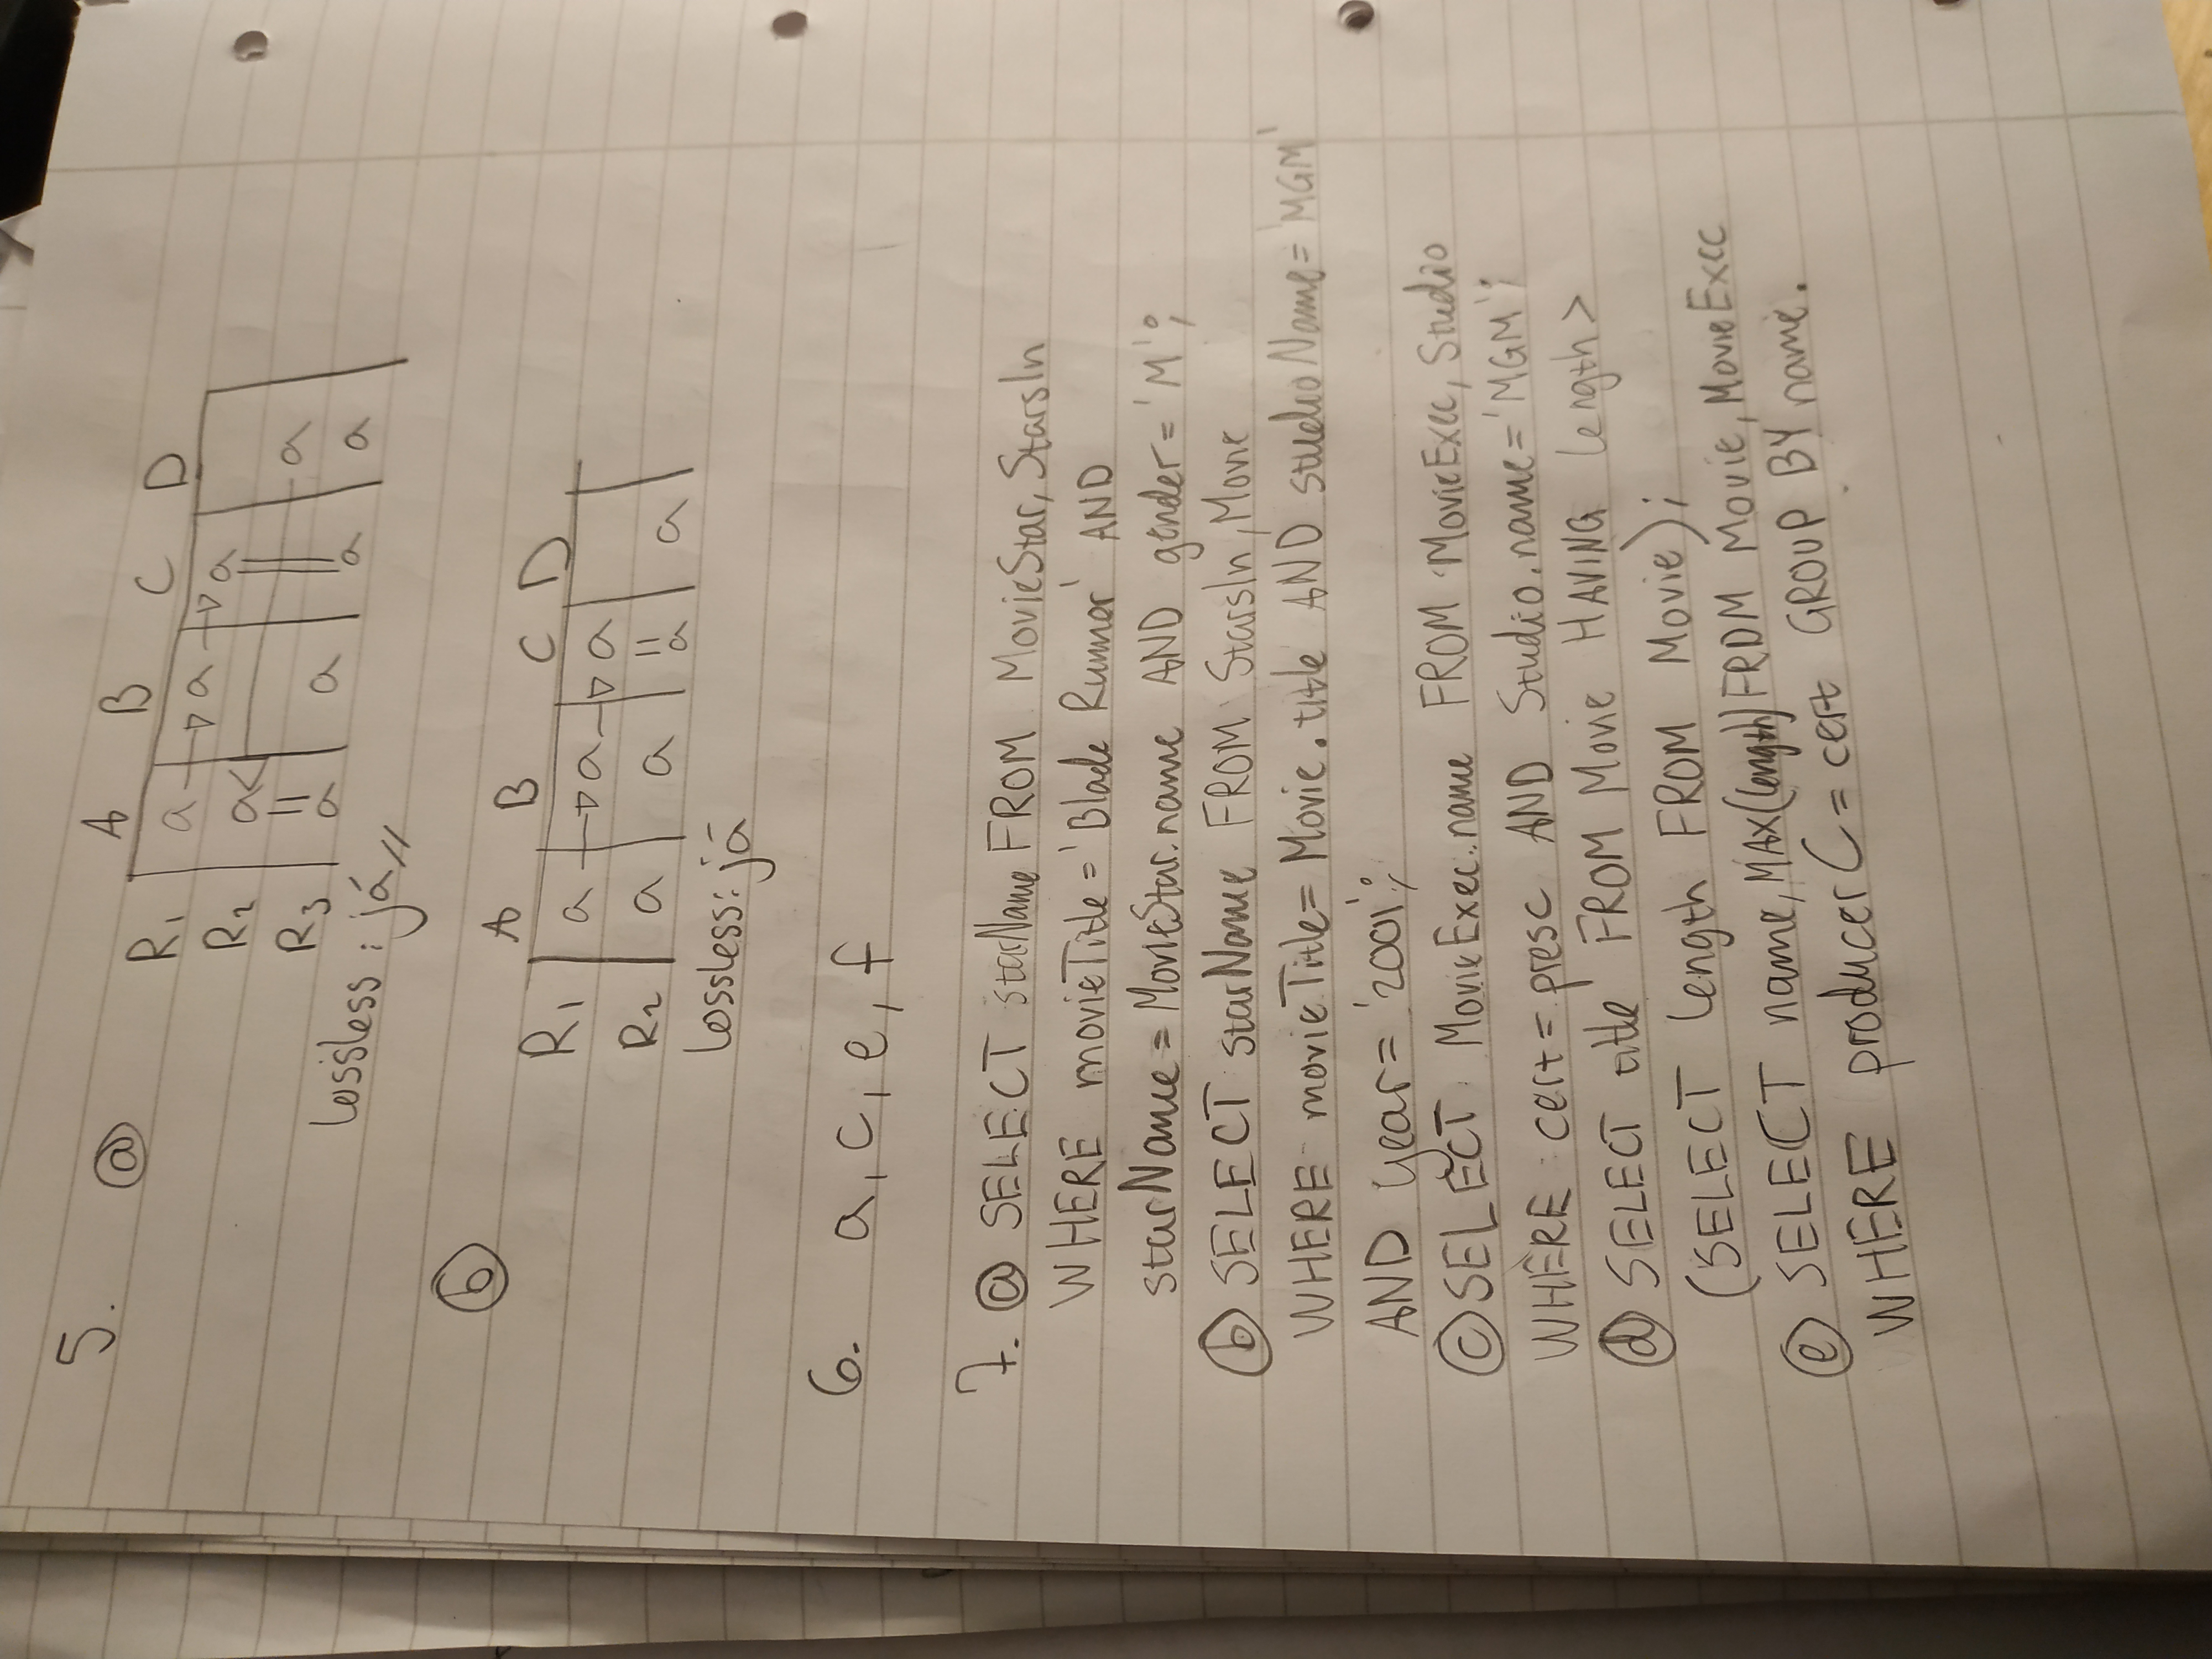 5. a A B C D
R1 a → a → a
R2 a < a
R3 a a a a
lossless: já //
b A B C D
R1 a → a → a
R2 a a a a
lossless: já
6. a, c, e, f
7. a SELECT starName FROM MovieStar, StarsIn
WHERE movieTitle = 'Blade Runner' AND
starName = MovieStar.name AND gender = 'M';
b SELECT starName FROM StarsIn, Movie
WHERE movieTitle = Movie.title AND studioName = 'MGM'
AND year = '2001';
c SELECT MovieExec.name FROM MovieExec, Studio
WHERE cert = presc AND Studio.name = 'MGM';
d SELECT title FROM Movie HAVING length >
(SELECT length FROM Movie);
e SELECT name, MAX(length) FROM Movie, MovieExec
WHERE producerC = cert GROUP BY name.